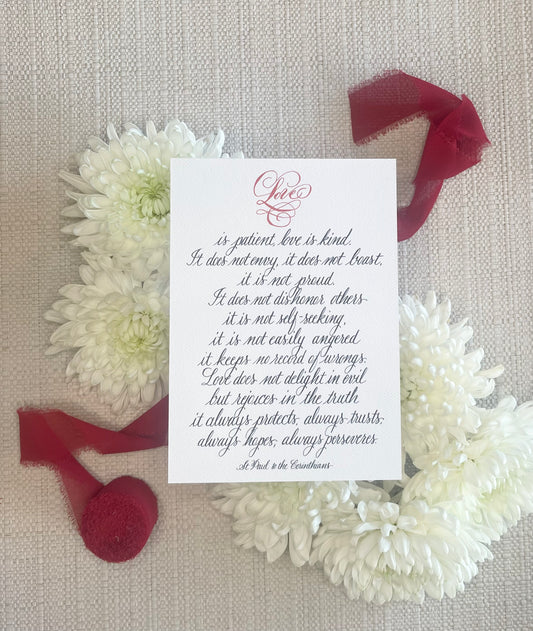 Love
is patient, love is kind.
It does not envy, it does not boast,
it is not proud.
It does not dishonor others
it is not self-seeking,
it is not easily angered
it keeps no record of wrongs.
Love does not delight in evil
but rejoices in the truth
it always protects, always trusts,
always hopes, always perseveres.
St Paul to the Corinthians